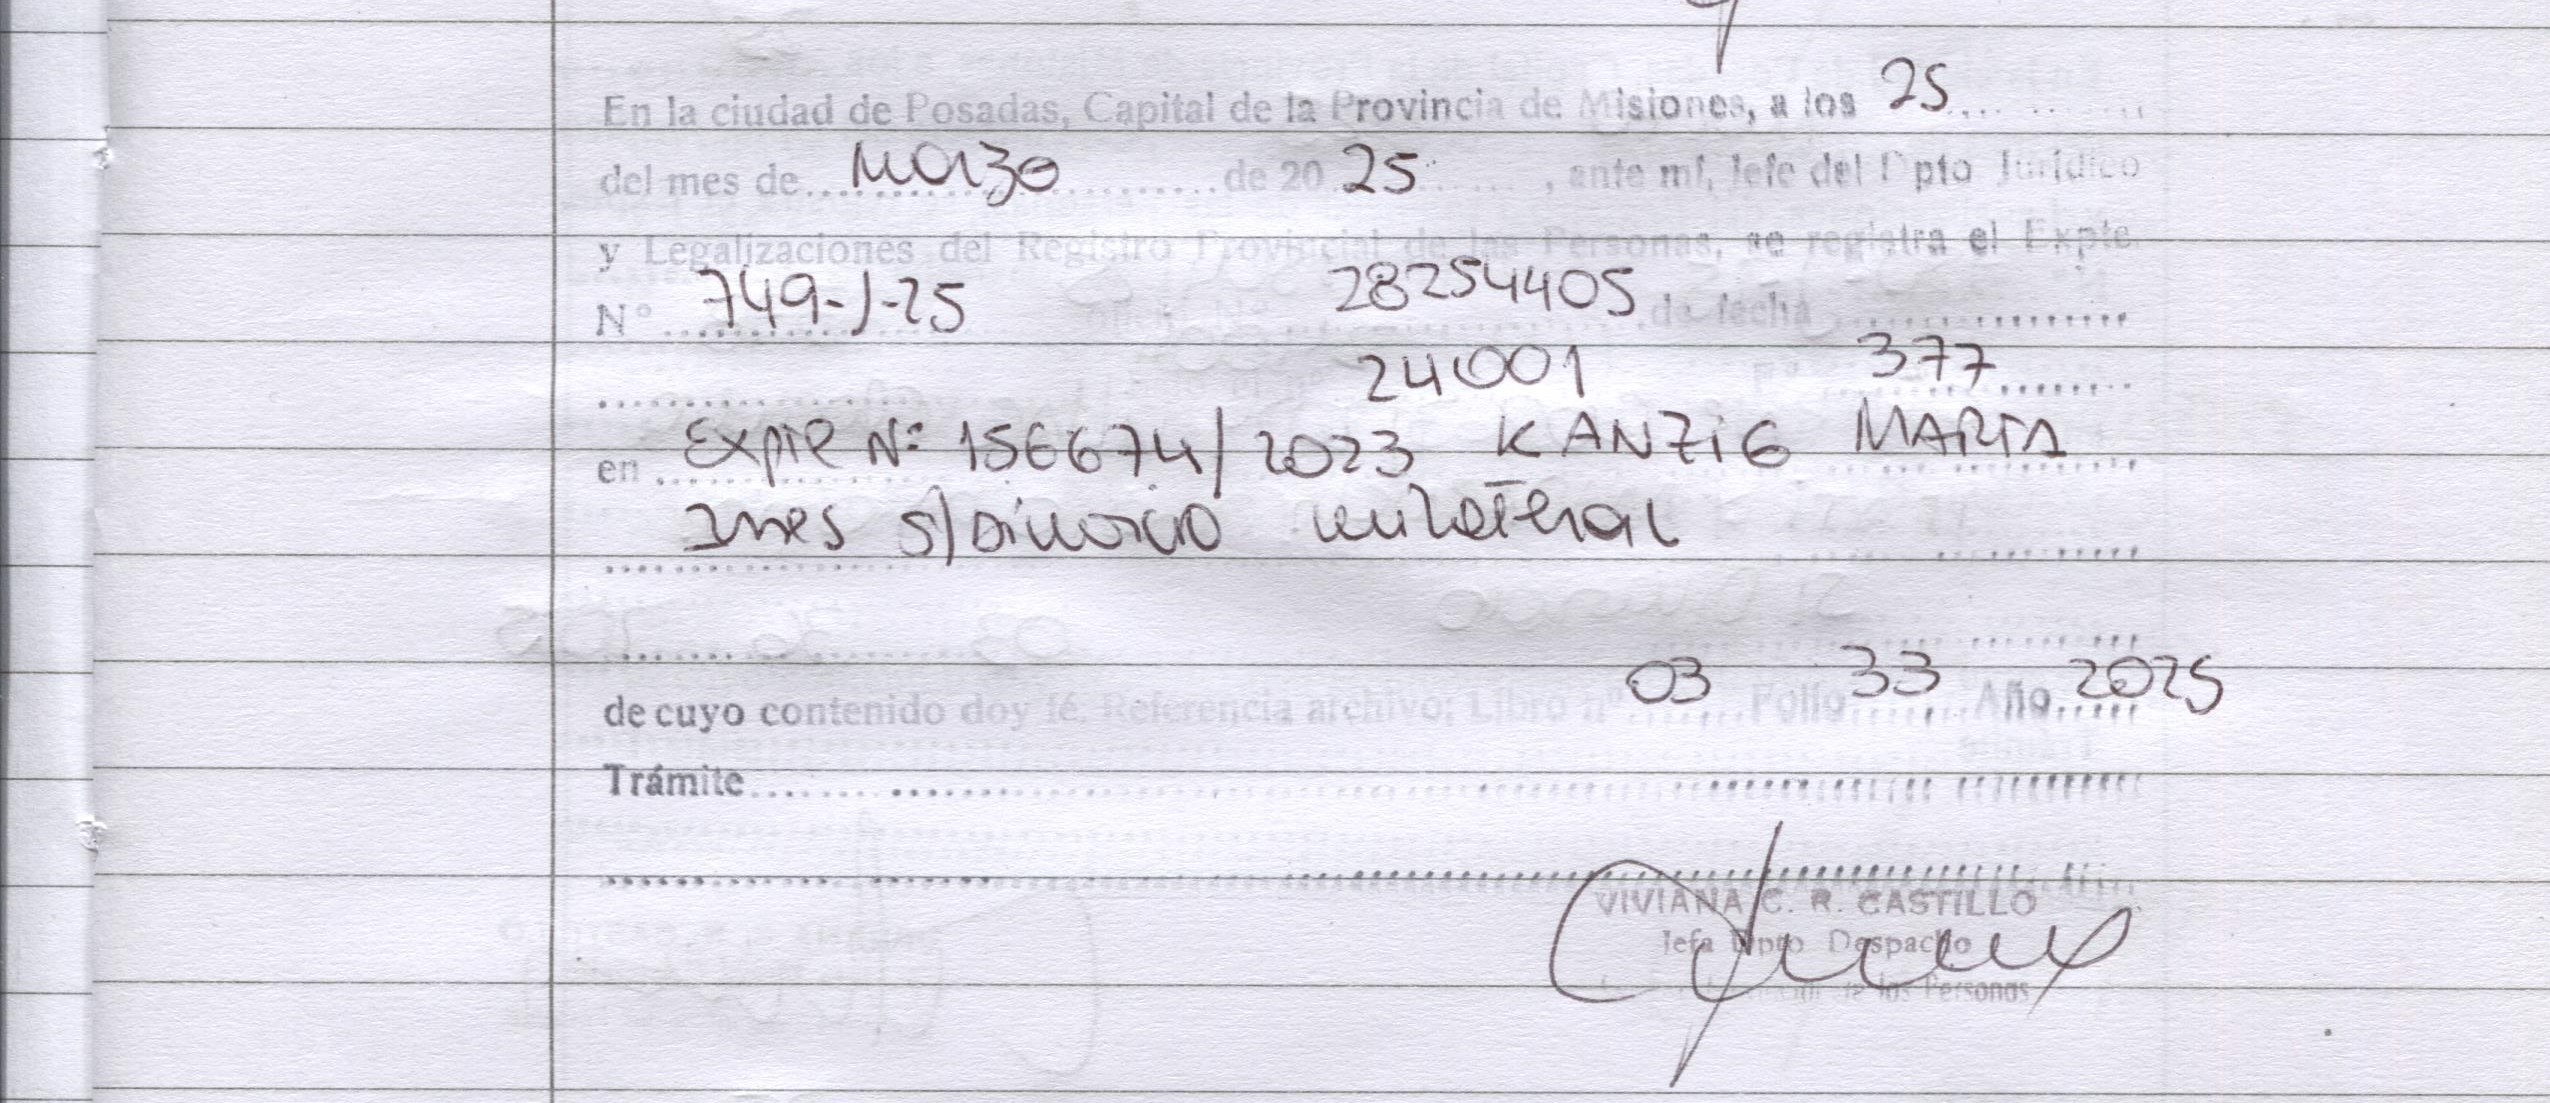 En la ciudad de Posadas, Capital de la Provincia de Misiones, a los 25
del mes de Marzo de 20 25 , ante mí, Jefe del Dpto Jurídico
y Legalizaciones del Registro Provincial de las Personas, se registra el Expte
N° 749-J-25 28254405 de fecha
24001 377
en Expte Nº 156674/2023 KANZIG MARTA
Ines s/Divorcio unilateral
de cuyo contenido doy fé. Referencia archivo: Libro nº 03 Folio 33 Año 2025
Trámite
VIVIANA C. R. CASTILLO
Jefa Dpto Despacho
de las Personas